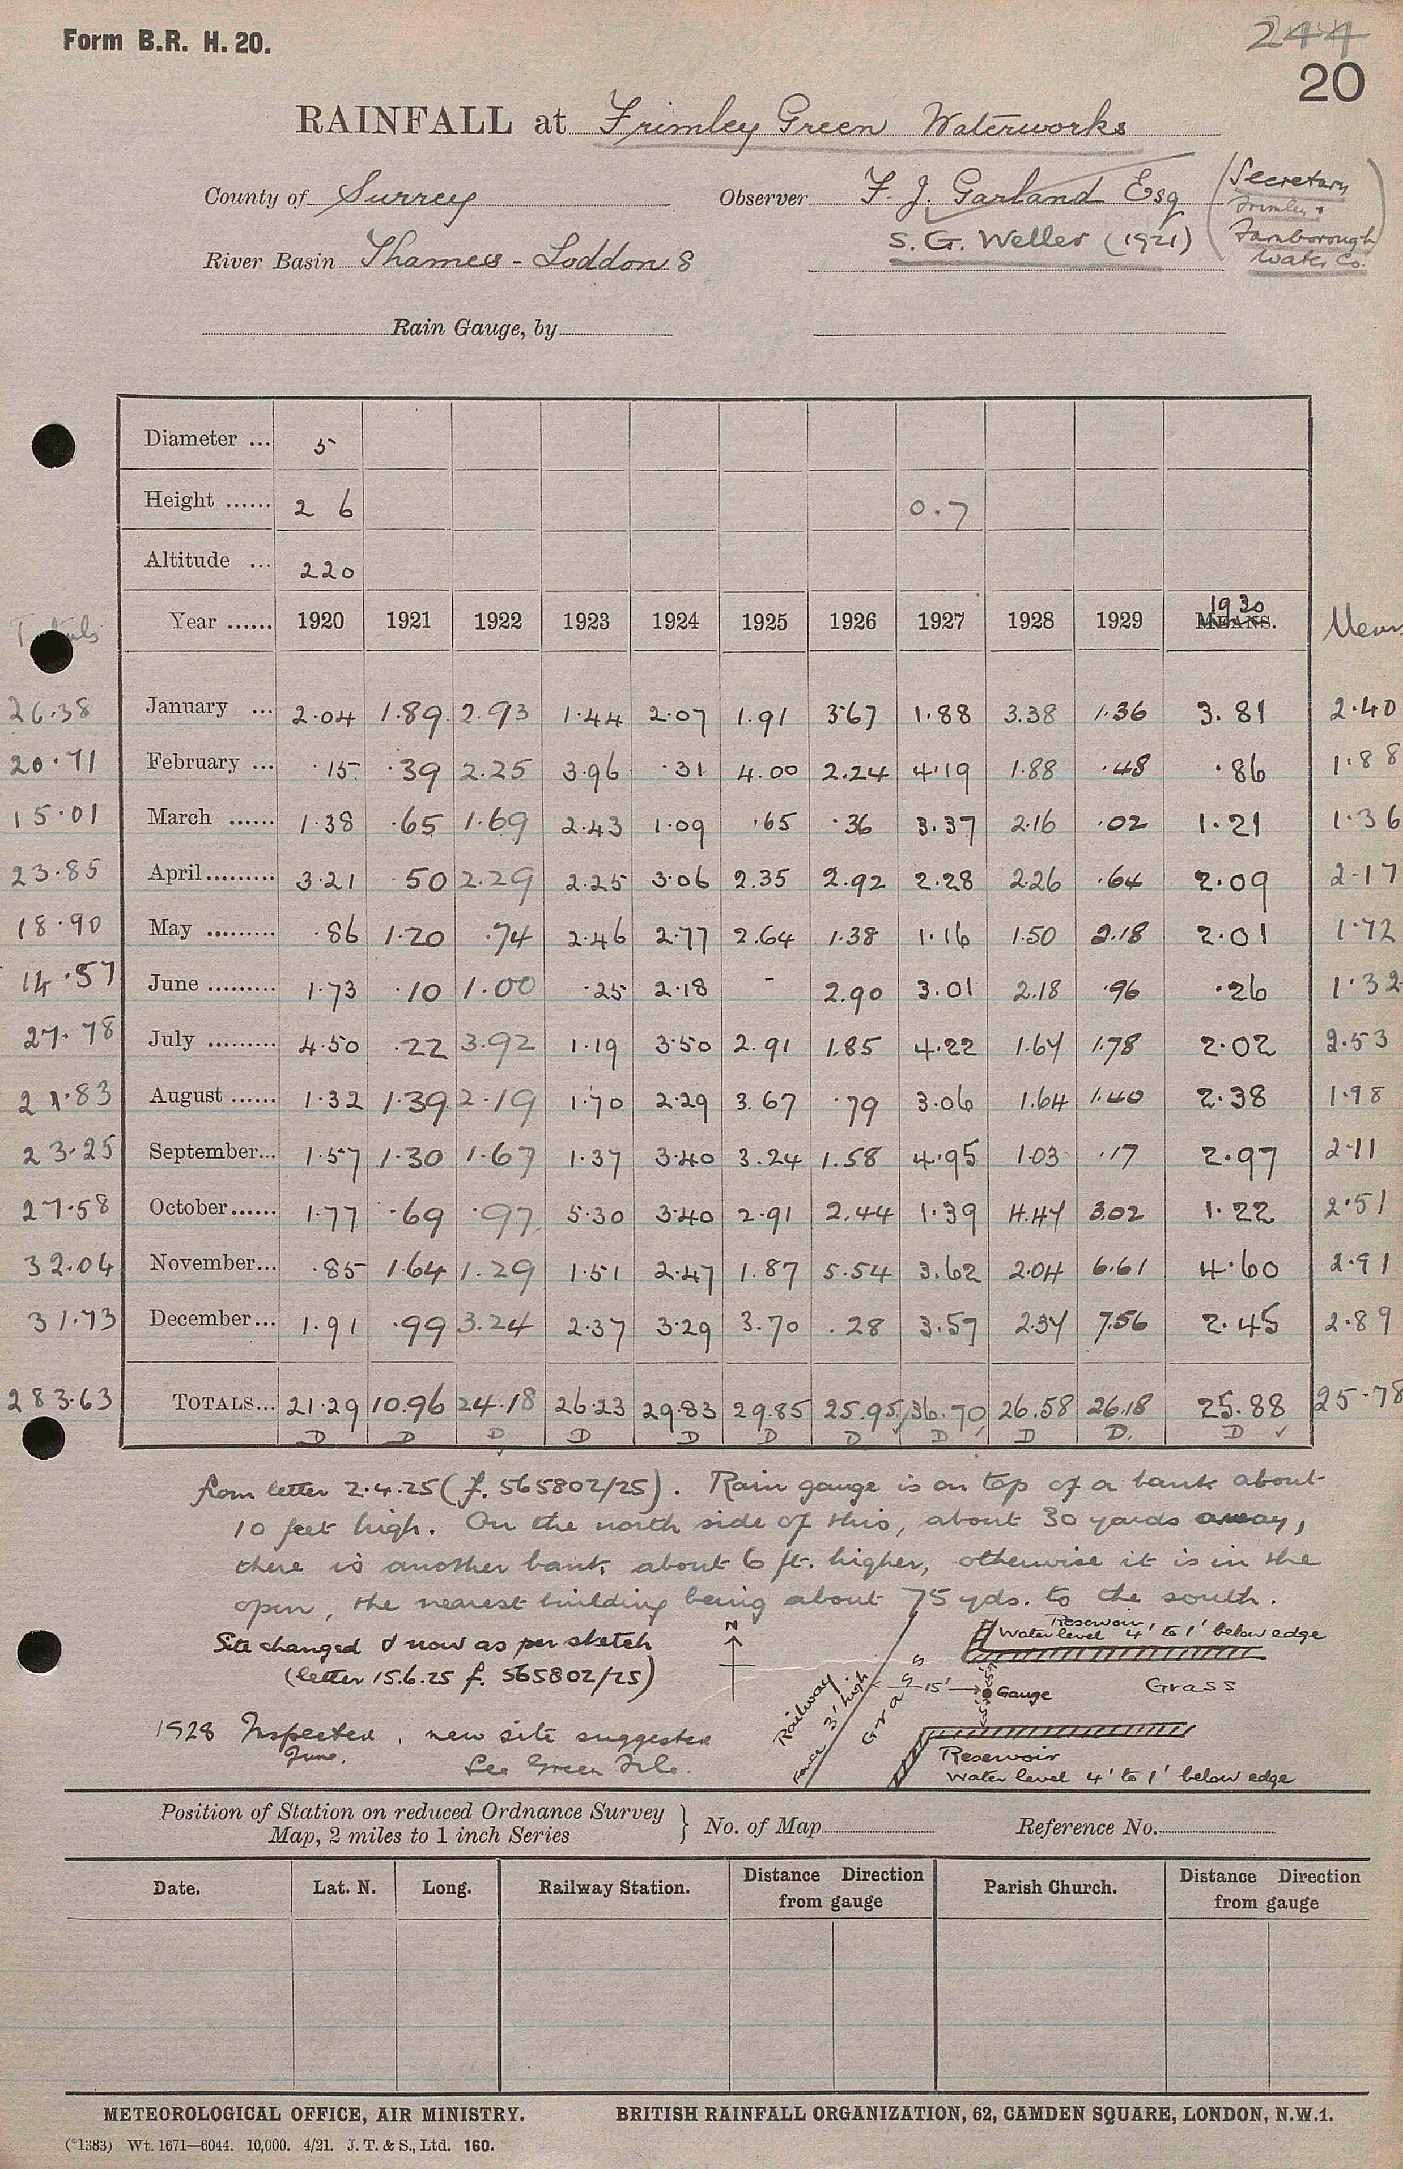 Form B.R. H. 20.
244
20
RAINFALL at Frimley Green Waterworks
County of Surrey Observer F. J. Garland Esq (Secretary
Frimley &
S. G. Weller (1921) Farnborough
Water Co.)
River Basin Thames - Loddon 8
Rain Gauge, by
Diameter ... 5
Height ...... 2 6 0.7
Altitude ... 220
Totals Year ...... 1920 1921 1922 1923 1924 1925 1926 1927 1928 1929 1930 MEANS. Mean
26.38 January ... 2.04 1.89 2.93 1.44 2.07 1.91 3.67 1.88 3.38 1.36 3.81 2.40
20.71 February ... .15 .39 2.25 3.96 .31 4.00 2.24 4.19 1.88 .48 .86 1.88
15.01 March ...... 1.38 .65 1.69 2.43 1.09 .65 .36 3.37 2.16 .02 1.21 1.36
23.85 April ......... 3.21 .50 2.29 2.25 3.06 2.35 2.92 2.28 2.26 .64 2.09 2.17
18.90 May ......... .86 1.20 .74 2.46 2.77 2.64 1.38 1.16 1.50 2.18 2.01 1.72
14.57 June ......... 1.73 .10 1.00 .25 2.18 - 2.90 3.01 2.18 .96 .26 1.32
27.78 July ......... 4.50 .22 3.92 1.19 3.50 2.91 1.85 4.22 1.67 1.78 2.02 2.53
21.83 August ...... 1.32 1.39 2.19 1.70 2.29 3.67 .79 3.06 1.64 1.40 2.38 1.98
23.25 September... 1.57 1.30 1.67 1.37 3.40 3.24 1.58 4.95 1.03 .17 2.97 2.11
27.58 October...... 1.77 .69 .97 5.30 3.40 2.91 2.44 1.39 4.47 3.02 1.22 2.51
32.04 November... .85 1.64 1.29 1.51 2.47 1.87 5.54 3.62 2.04 6.61 4.60 2.91
31.73 December... 1.91 .99 3.24 2.37 3.29 3.70 .28 3.57 2.37 7.56 2.45 2.89
283.63 TOTALS... 21.29 10.96 24.18 26.23 29.83 29.85 25.95 36.70 26.58 26.18 25.88 25.78
D D D D D D D D D D. D
from letter 2.4.25 (f. 565802/25). Rain gauge is on top of a bank about
10 feet high. On the north side of this, about 30 yards away,
there is another bank, about 6 ft. higher, otherwise it is in the
open, the nearest building being about 75 yds. to the south.
Site changed & now as per sketch
(letter 15.6.25 f. 565802/25)
1928 Inspected, new site suggested
June. See Green File.
N
Railway
Fence 3' high
Grass
15'
Gauge
Reservoir
Water level 4' to 1' below edge
Grass
Reservoir
Water level 4' to 1' below edge
Position of Station on reduced Ordnance Survey
Map, 2 miles to 1 inch Series } No. of Map Reference No.
Date. Lat. N. Long. Railway Station. Distance Direction from gauge Parish Church. Distance Direction from gauge
METEOROLOGICAL OFFICE, AIR MINISTRY. BRITISH RAINFALL ORGANIZATION, 62, CAMDEN SQUARE, LONDON, N.W.1.
(*1383) Wt. 1671—6044. 10,000. 4/21. J. T. & S., Ltd. 160.